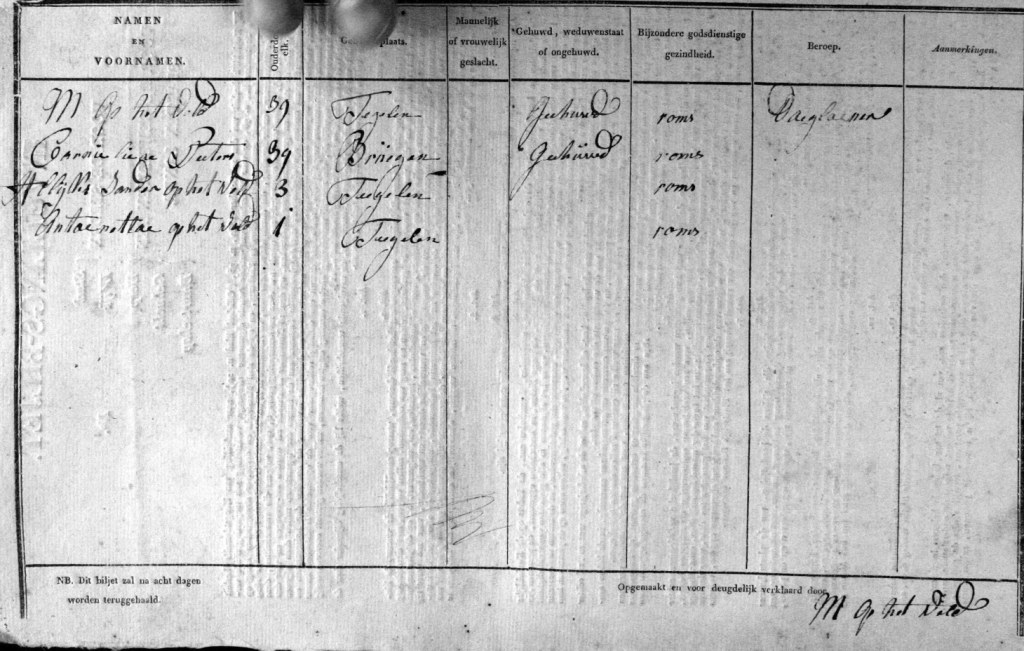 NAMEN EN VOORNAMEN. Ouderdo elk. plaats. Mannelijk of vrouwelijk geslacht. Gehuwd, weduwenstaat of ongehuwd. Bijzondere godsdienstige gezindheid. Beroep. Aanmerkingen.
M Op het Veld 39 Tegelen Gehuwd roms Daeglaener
Peeters 39 Brüegen Gehüwd roms
op het Veld 3 Teegelen roms
Antaenettae op het Veld 1 Teegelen roms
NB. Dit biljet zal na acht dagen worden teruggehaald.
Opgemaakt en voor deugdelijk verklaard door
M Op het Veld